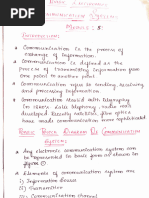 Basic Electronics
Communication Systems
Module : 5
Introduction
Communication is the process of
exchange of information.
Communication is defined as the
process of transmitting information from
one point to another point.
Communication refers to sending, receiving
and processing information.
Communication started with telegraphy
In 1840. Using telephony, radio and
developed Recently satellite, fiber optics
have made communication more sophisticated.
Basic Block Diagram Of Communication
System
Any electronic communication system can
be represented in basic form as shown in
figure ①
Elements of communication system are
i) Information source
ii) Transmitter
iii) Communication channel